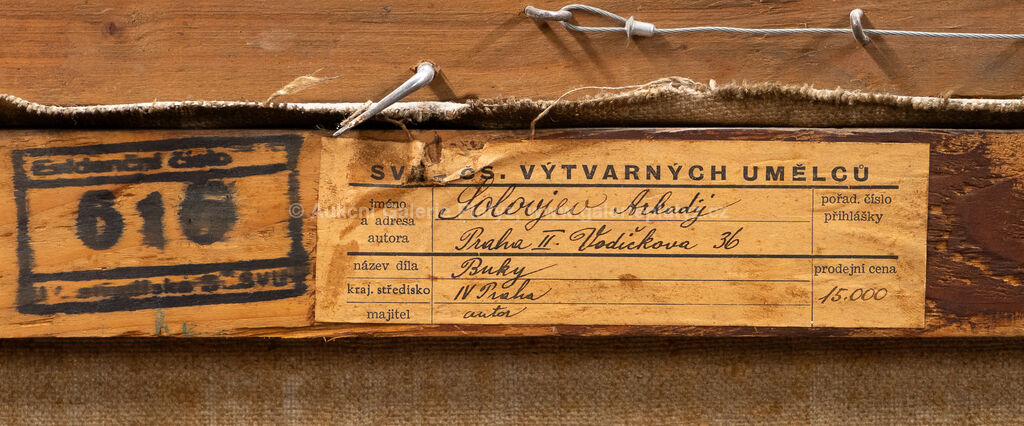 Evidenční číslo
616
SVA ČS. VÝTVARNÝCH UMĚLCŮ
jméno
a adresa
autora
Solovjev Arkadÿ
Praha II. Vodičkova 36
pořad. číslo
přihlášky
název díla
Buky
prodejní cena
kraj. středisko
IV Praha
15.000
majitel
autor